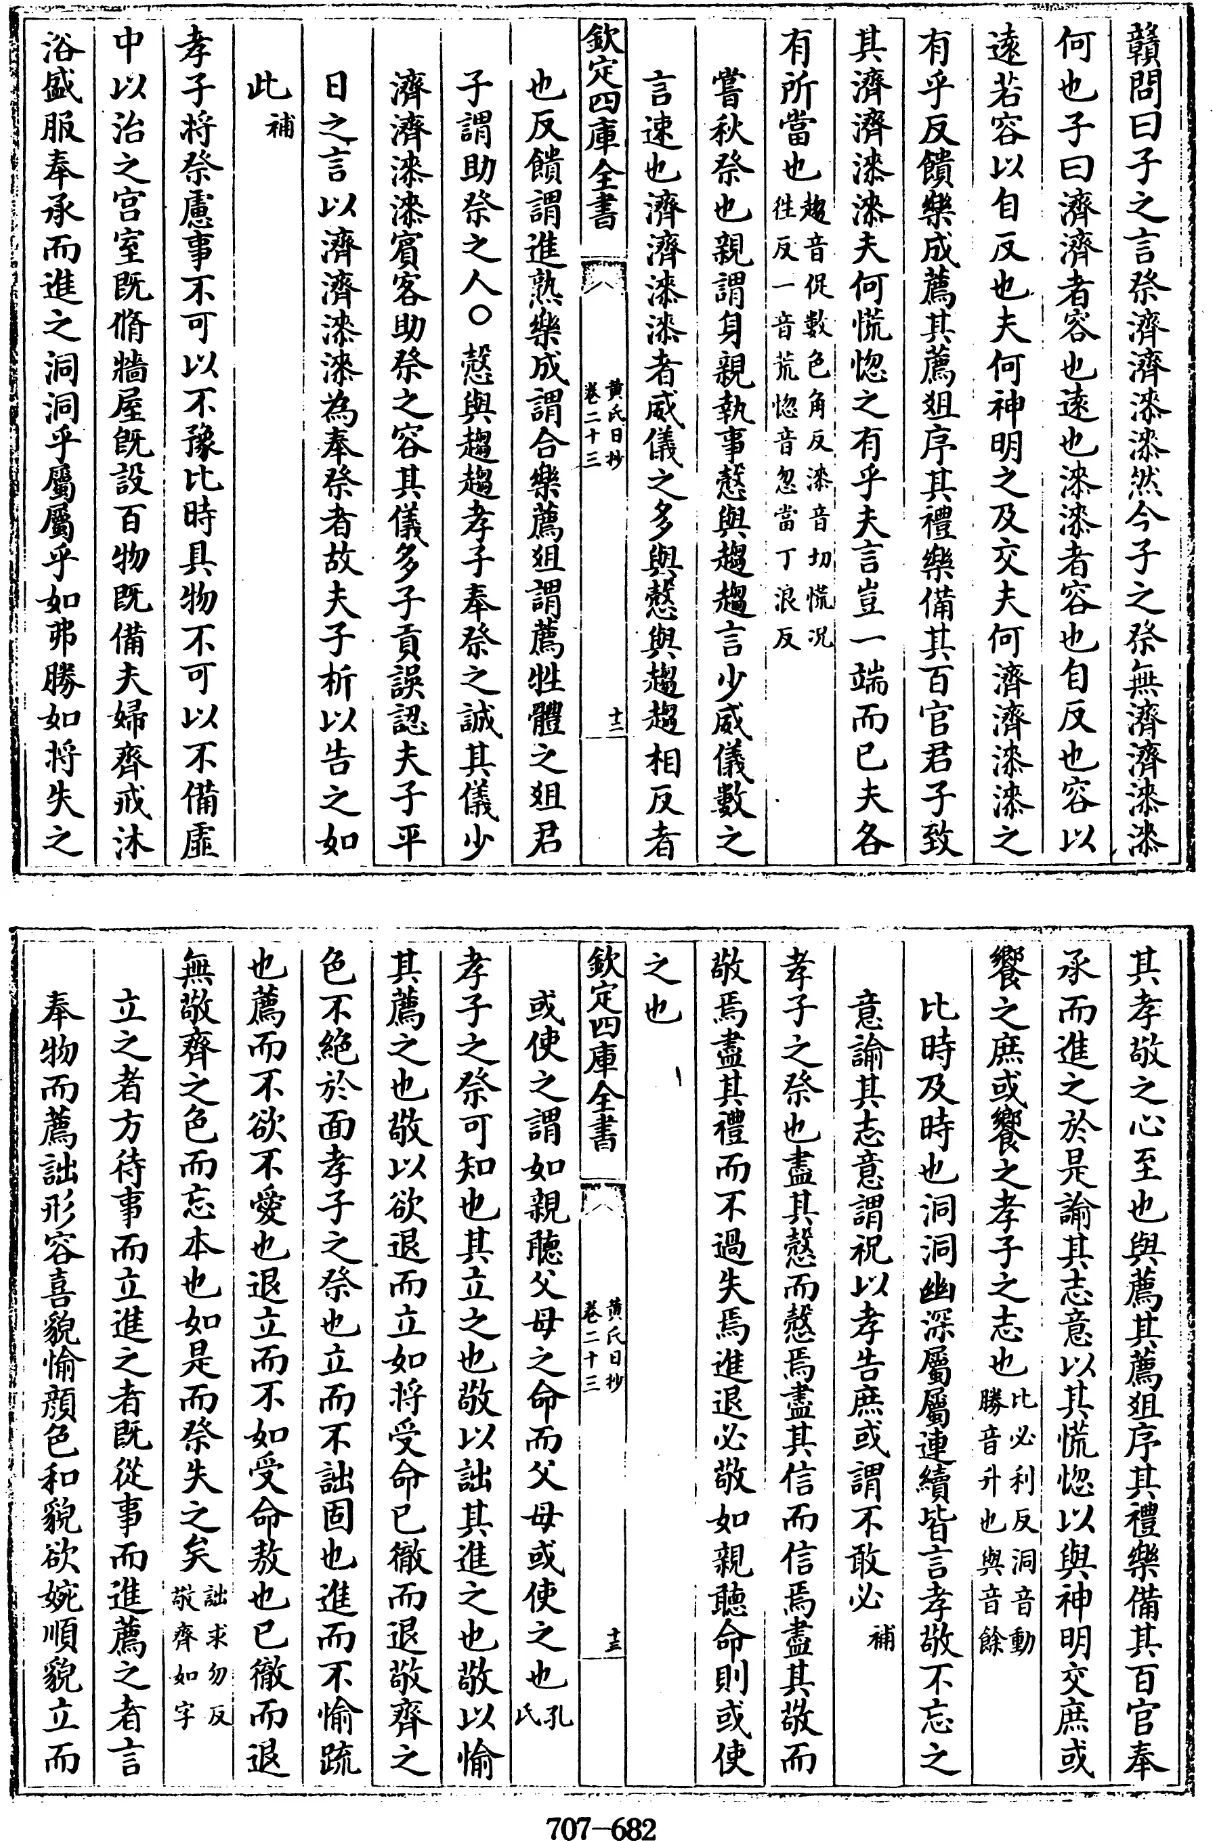 贛問曰子之言祭濟濟漆漆然今子之祭無濟濟漆漆
何也子曰濟濟者容也遠也漆漆者容也自反也容以
遠若容以自反也夫何神明之及交夫何濟濟漆漆之
有乎反饋樂成薦其薦俎序其禮樂備其百官君子致
其濟濟漆漆夫何慌惚之有乎夫言豈一端而已夫各
有所當也趨音促數色角反漆音切慌况
徃反一音荒惚音忽當丁浪反
嘗秋祭也親謂身親執事慤與趨趨言少威儀數之
言速也濟濟漆漆者威儀之多與慤與趨趨相反者
欽定四庫全書
黄氏日抄
卷二十三
十二
也反饋謂進熟樂成謂合樂薦俎謂薦牲體之俎君
子謂助祭之人○慤與趨趨孝子奉祭之誠其儀少
濟濟漆漆賓客助祭之容其儀多子貢誤認夫子平
日之言以濟濟漆漆為奉祭者故夫子析以告之如
此補
孝子将祭慮事不可以不豫比時具物不可以不備虛
中以治之宫室既脩牆屋既設百物既備夫婦齊戒沐
浴盛服奉承而進之洞洞乎屬屬乎如弗勝如将失之
其孝敬之心至也與薦其薦俎序其禮樂備其百官奉
承而進之於是諭其志意以其慌惚以與神明交庶或
饗之庶或饗之孝子之志也比必利反洞音動
勝音升也與音餘
比時及時也洞洞幽深屬屬連續皆言孝敬不忘之
意諭其志意謂祝以孝告庶或謂不敢必補
孝子之祭也盡其慤而慤焉盡其信而信焉盡其敬而
敬焉盡其禮而不過失焉進退必敬如親聽命則或使
之也
欽定四庫全書
黄氏日抄
卷二十三
十三
或使之謂如親聽父母之命而父母或使之也孔氏
孝子之祭可知也其立之也敬以詘其進之也敬以愉
其薦之也敬以欲退而立如将受命已徹而退敬齊之
色不絶於面孝子之祭也立而不詘固也進而不愉疏
也薦而不欲不愛也退立而不如受命敖也已徹而退
無敬齊之色而忘本也如是而祭失之矣詘求勿反
敬齊如字
立之者方待事而立進之者既從事而進薦之者言
奉物而薦詘形容喜貌愉顔色和貌欲婉順貌立而
707-682